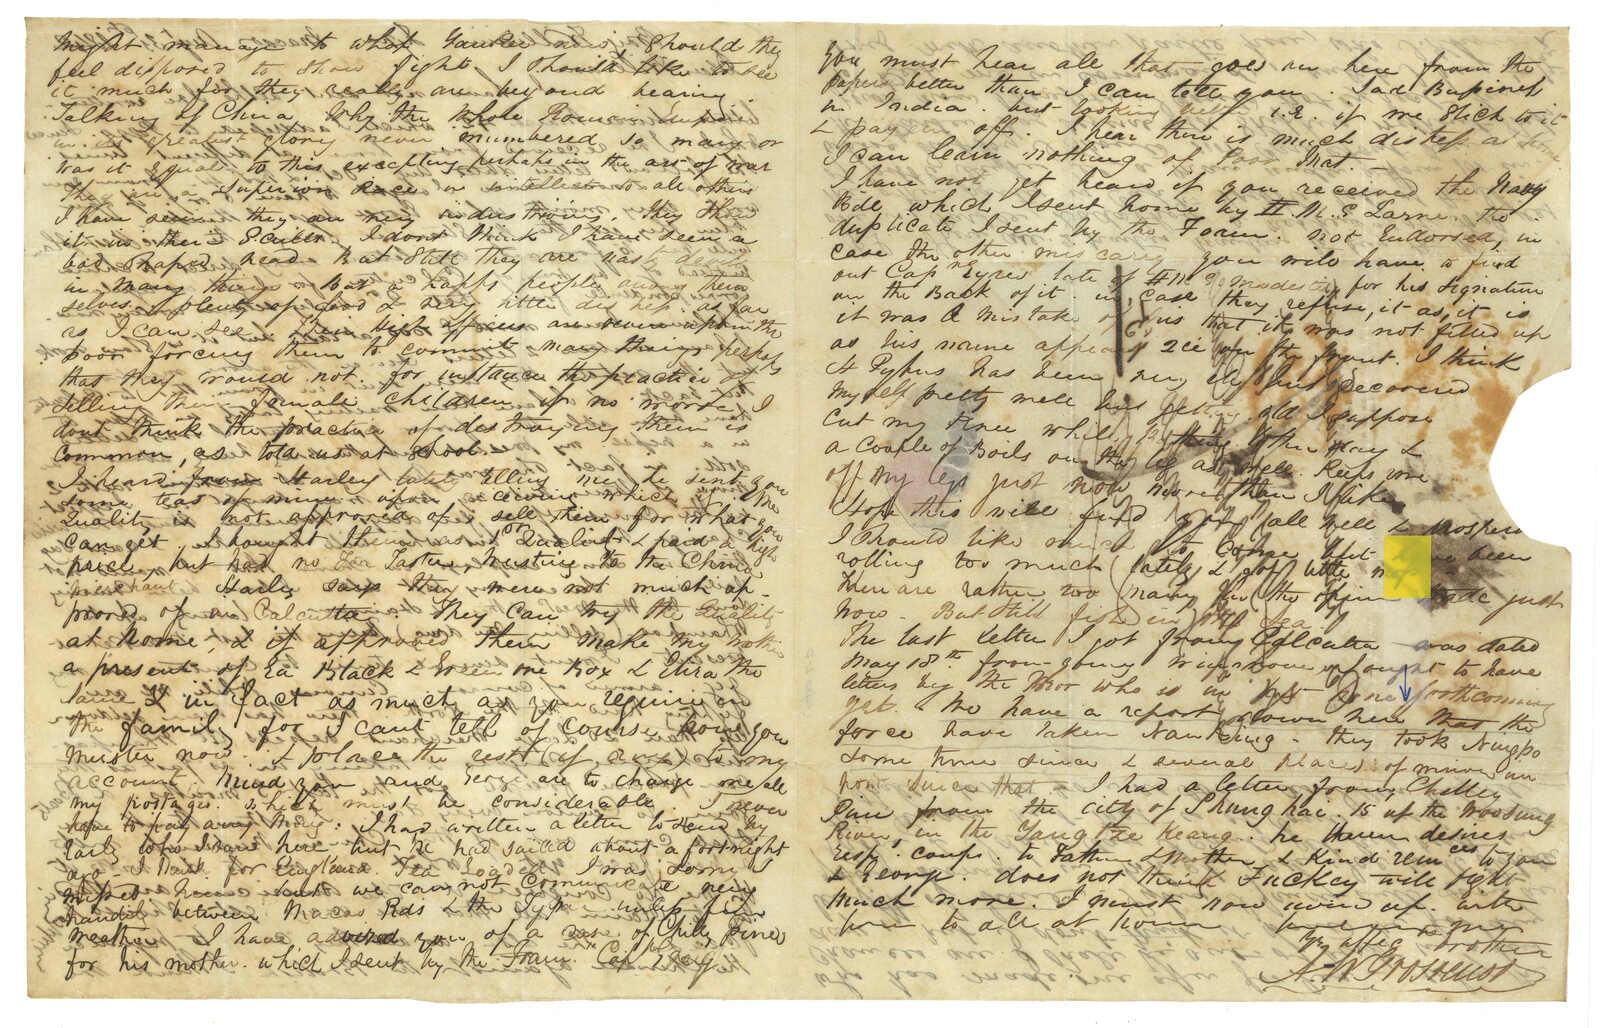 might manage to whop Yankee now, should they
feel disposed to show fight I should like to see
it much for they really are beyond bearing.
Talking of China Why the Whole Roman Empire
in its greatest glory never numbered so many or
was it Equal to this excepting perhaps in the art of war
They are a superior race in intellect to all others
I have seen they are very industrious. they show
it in there Sculls. I dont think I have seen a
bad shaped head. But still they are
in many things But a happy people among them
selves. plenty of food & very little as far
as I can see. their high officers are severe upon the
Poor forcing them to commit many things perhaps
that they would not. for instance the practice of
selling their female children if no more I
dont think the practice of destroying them is
common, as told us at School.
I heard from Harley lately telling me he sent you
some teas of mine upon receiving which if the
Quality is not approved of sell them for what you
can get. I bought them as 1st Quality & paid a high
price, but had no Tea Taster, trusting to the China
merchant Harley says they were not much ap-
proved of in Calcutta. They can try the Quality
at home, & if approved them make my mother
a present of Ea Black & Green one Box & Eliza the
same & in fact as much as you require in
the family for I cant tell of course how you
muster now. & place the rest (if any) to my
account. Mind you and George are to charge me all
my postages which must be considerable I never
have to pay any thing. I had written a letter to send by
Early who I saw here but he had sailed about a fortnight
ago I think for England. Tea Loaded I was sorry
missed him but we can not communicate very
handily between Macao Rds & the Typa unless fine
weather I have advised you of a case of Chelly Pines
for his mother. which I sent by the Foam. Capt Greig
You must hear all that goes on here from the
papers better than I can tell you. Sad Business
in India. but looking better i.e. if we stick to it
& pay em off. I hear there is much distress at home
I can learn nothing of Poor Mat.
I have not yet heard if you received the Navy
Bill which I sent home by H M S Larne the
duplicate I sent by the Foam. not Endorsed, in
case the other miscarry you will have to find
out Capn Eyres late of HMS Modeste for his signature
on the Back of it. in case they refuse it as it is
it was a mistake of us that it was not filled up
as his name appears on the front. I think
H Pybus has been very ill but recovered
Myself pretty well but getting old I suppose
Cut my Knee while bathing other day &
a couple of Boils on the leg as well Keeps me
off my legs just now more than I like
Hope this will find you all well &
I should like much to come but been
rolling too much lately & got little
There are rather too many for the opium trade just
now. But still fish in the Sea
The last letter I got from Calcutta was dated
May 18th from young Wigram I ought to have
letters by the who is in forthcoming
yet. We have a report down here that the
force have taken Nanking. they took Ningpo
some time since & several places of minor im
port since that I had a letter from Chelley
Pine from the city of Shunghai. 15 up the Woosung
River in the Yangtze Keang. he then desires
respl comps to Father & Mother, & Kind remces to you
& George. does not think Fuckey will fight
Much more. I must now wind up with
love to all at home
Yr affec Brother